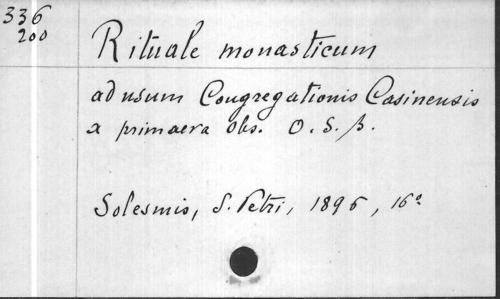 336
200
Rituale monasticum
ad usum Congregationis Casinensis
a primaera obs. O. S. B.
Solesmis, S. Petri, 1896, 16°